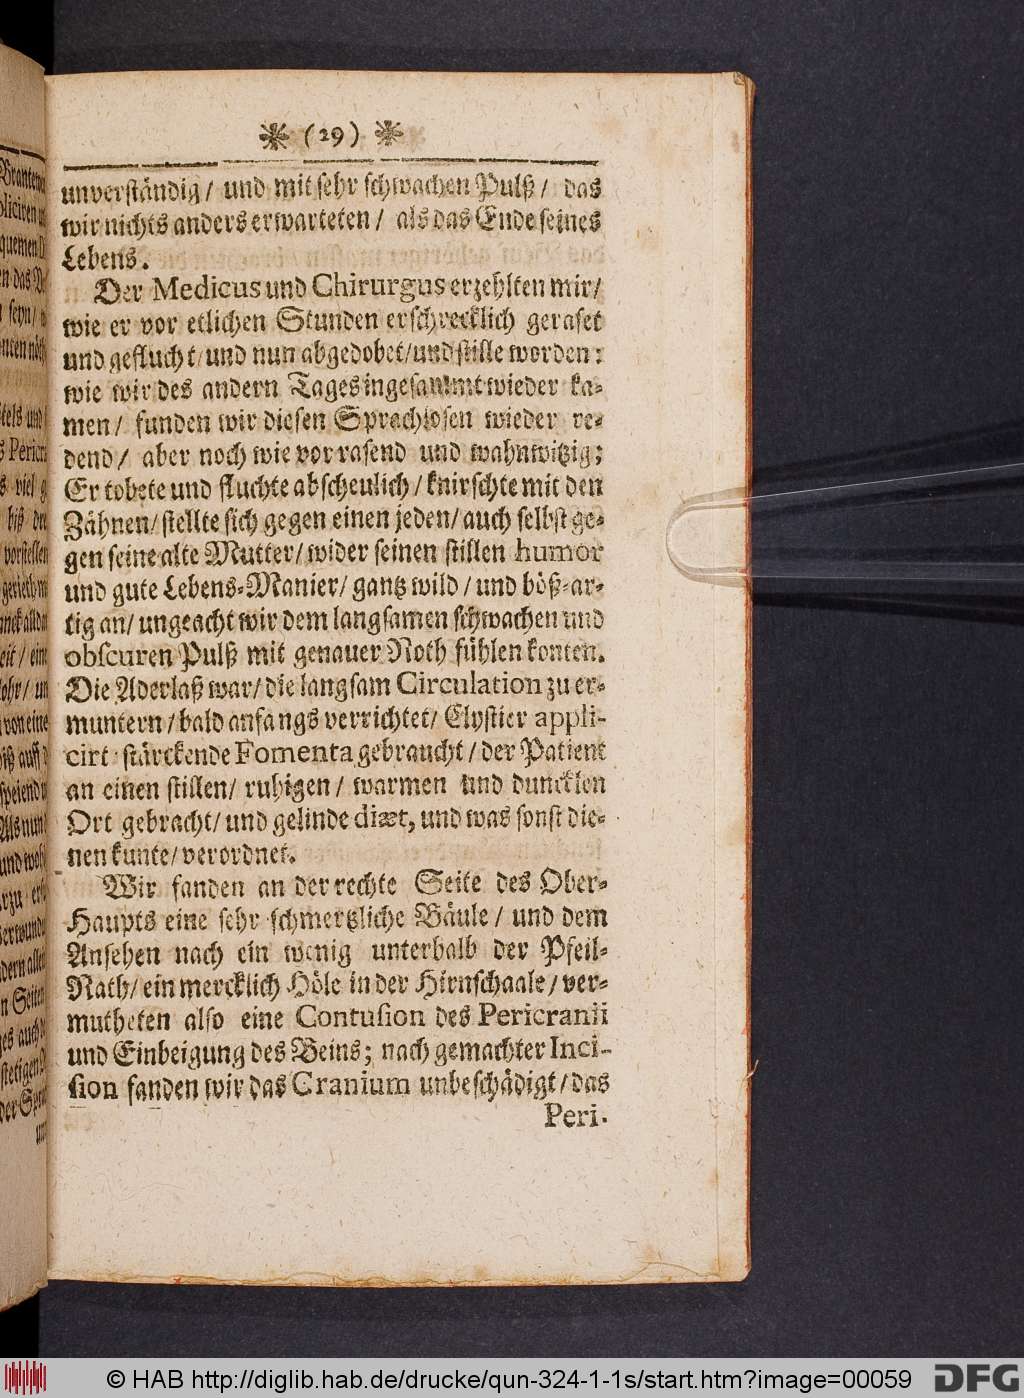 (29)
unverständig / und mit sehr schwachen Pulß / das
wir nichts anders erwarteten / als das Ende seines
Lebens.
Der Medicus und Chirurgus erzehlten mir /
wie er vor etlichen Stunden erschrecklich geraset
und geflucht / und nun abgedobet / und stille worden:
wie wir des andern Tages ingesammt wieder ka-
men / funden wir diesen Sprachlosen wieder re-
dend / aber noch wie vor rasend und wahnwitzig;
Er tobete und fluchte abscheulich / knirschte mit den
Zähnen / stellte sich gegen einen jeden / auch selbst ge-
gen seine alte Mutter / wider seinen stillen humor
und gute Lebens-Manier / gantz wild / und böß-ar-
tig an / ungeacht wir dem langsamen schwachen und
obscuren Pulß mit genauer Noth fühlen konten.
Die Aderlaß war / die langsam Circulation zu er-
muntern / bald anfangs verrichtet / Clystier appli-
cirt stärckende Fomenta gebraucht / der Patient
an einen stillen / ruhigen / warmen und duncklen
Ort gebracht / und gelinde diæt, und was sonst die-
nen kunte / verordnet.
Wir fanden an der rechte Seite des Ober-
Haupts eine sehr schmertzliche Bäule / und dem
Ansehen nach ein wenig unterhalb der Pfeil-
Nath / ein mercklich Höle in der Hirnschaale / ver-
mutheten also eine Contusion des Pericranii
und Einbeigung des Beins; nach gemachter Inci-
sion fanden wir das Cranium unbeschädigt / das
Peri-
© HAB http://diglib.hab.de/drucke/qun-324-1-1s/start.htm?image=00059
DFG